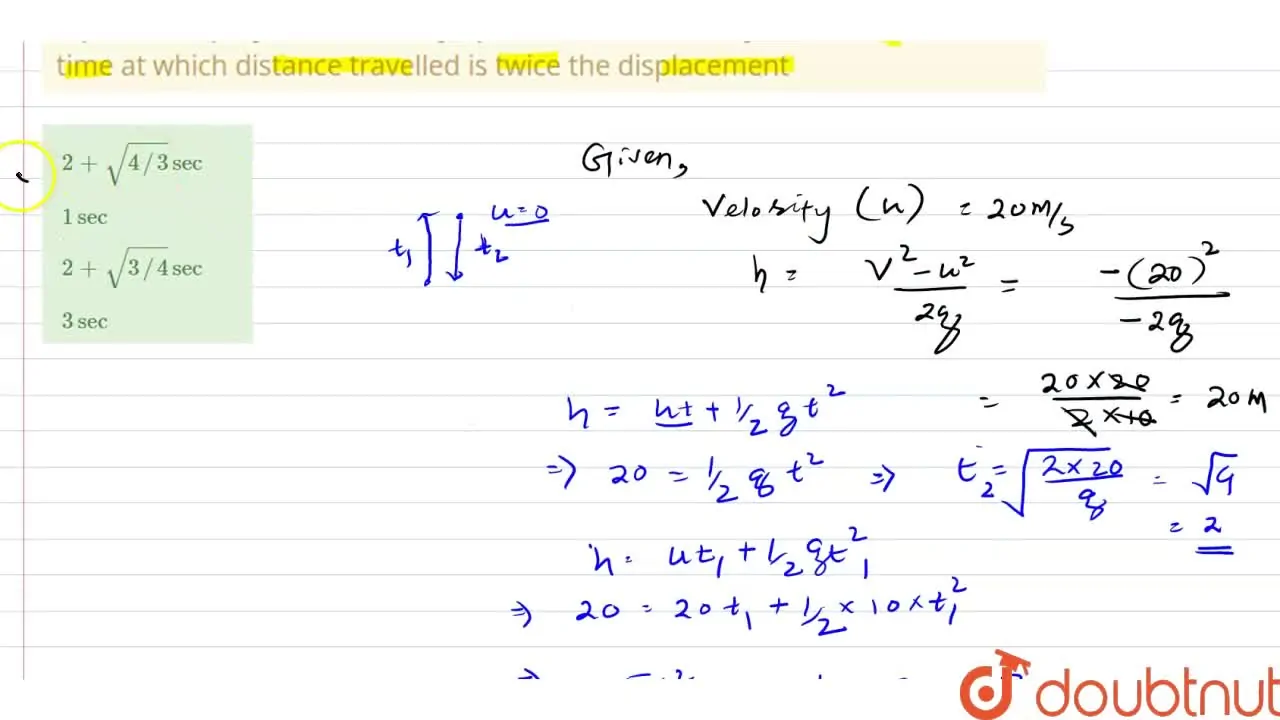 time at which distance travelled is twice the displacement
2 + √4/3 sec
1 sec
2 + √3/4 sec
3 sec
Given,
Velosity (u) = 20 m/s
u=0
t₁ t₂
h = V² - u² / 2g = -(20)² / -2g
= 20 × 20 / 2 × 10 = 20 M
h = ut + 1/2 gt²
=> 20 = 1/2 g t² => t₂ = √2×20/g = √4
= 2
h = ut₁ + 1/2 gt₁²
=> 20 = 20t₁ + 1/2 × 10 × t₁²
doubtnut